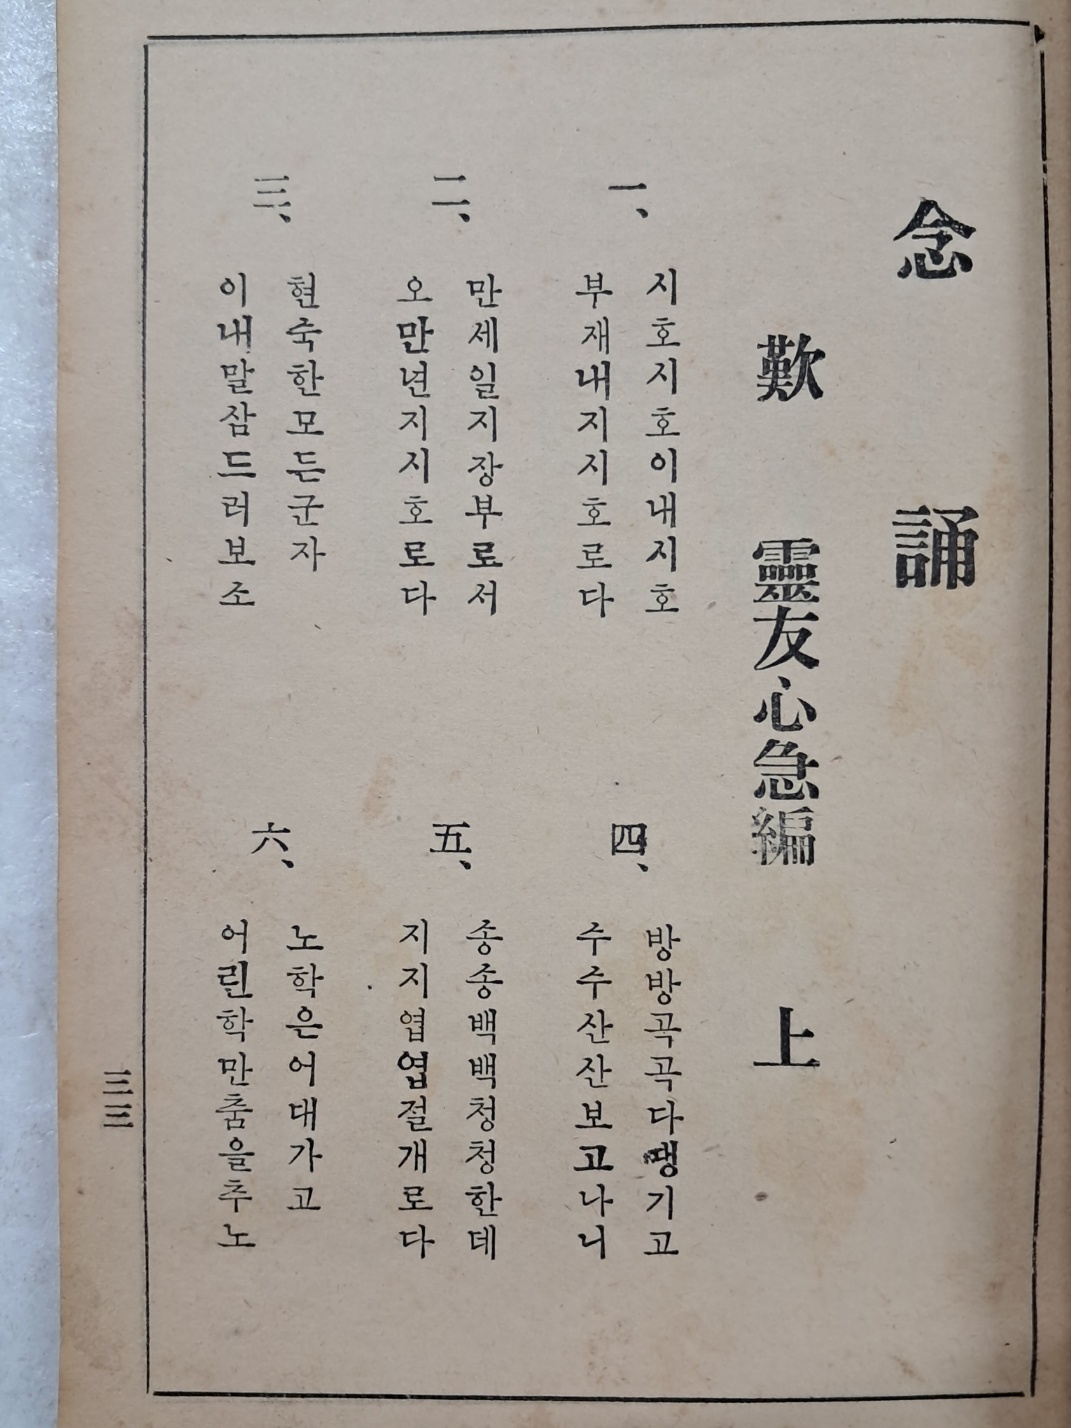 念誦
歎 靈友心急編 上
一、
시호시호이내시호
부재내지시호로다
二、
만세일지장부로서
오만년지시호로다
三、
현숙한모든군자
이내말삼드러보소
四、
방방곡곡다땡기고
주주산산보고나니
五、
송송백백청청한데
지지엽엽절개로다
六、
노학은어대가고
어린학만춤을추노
三三